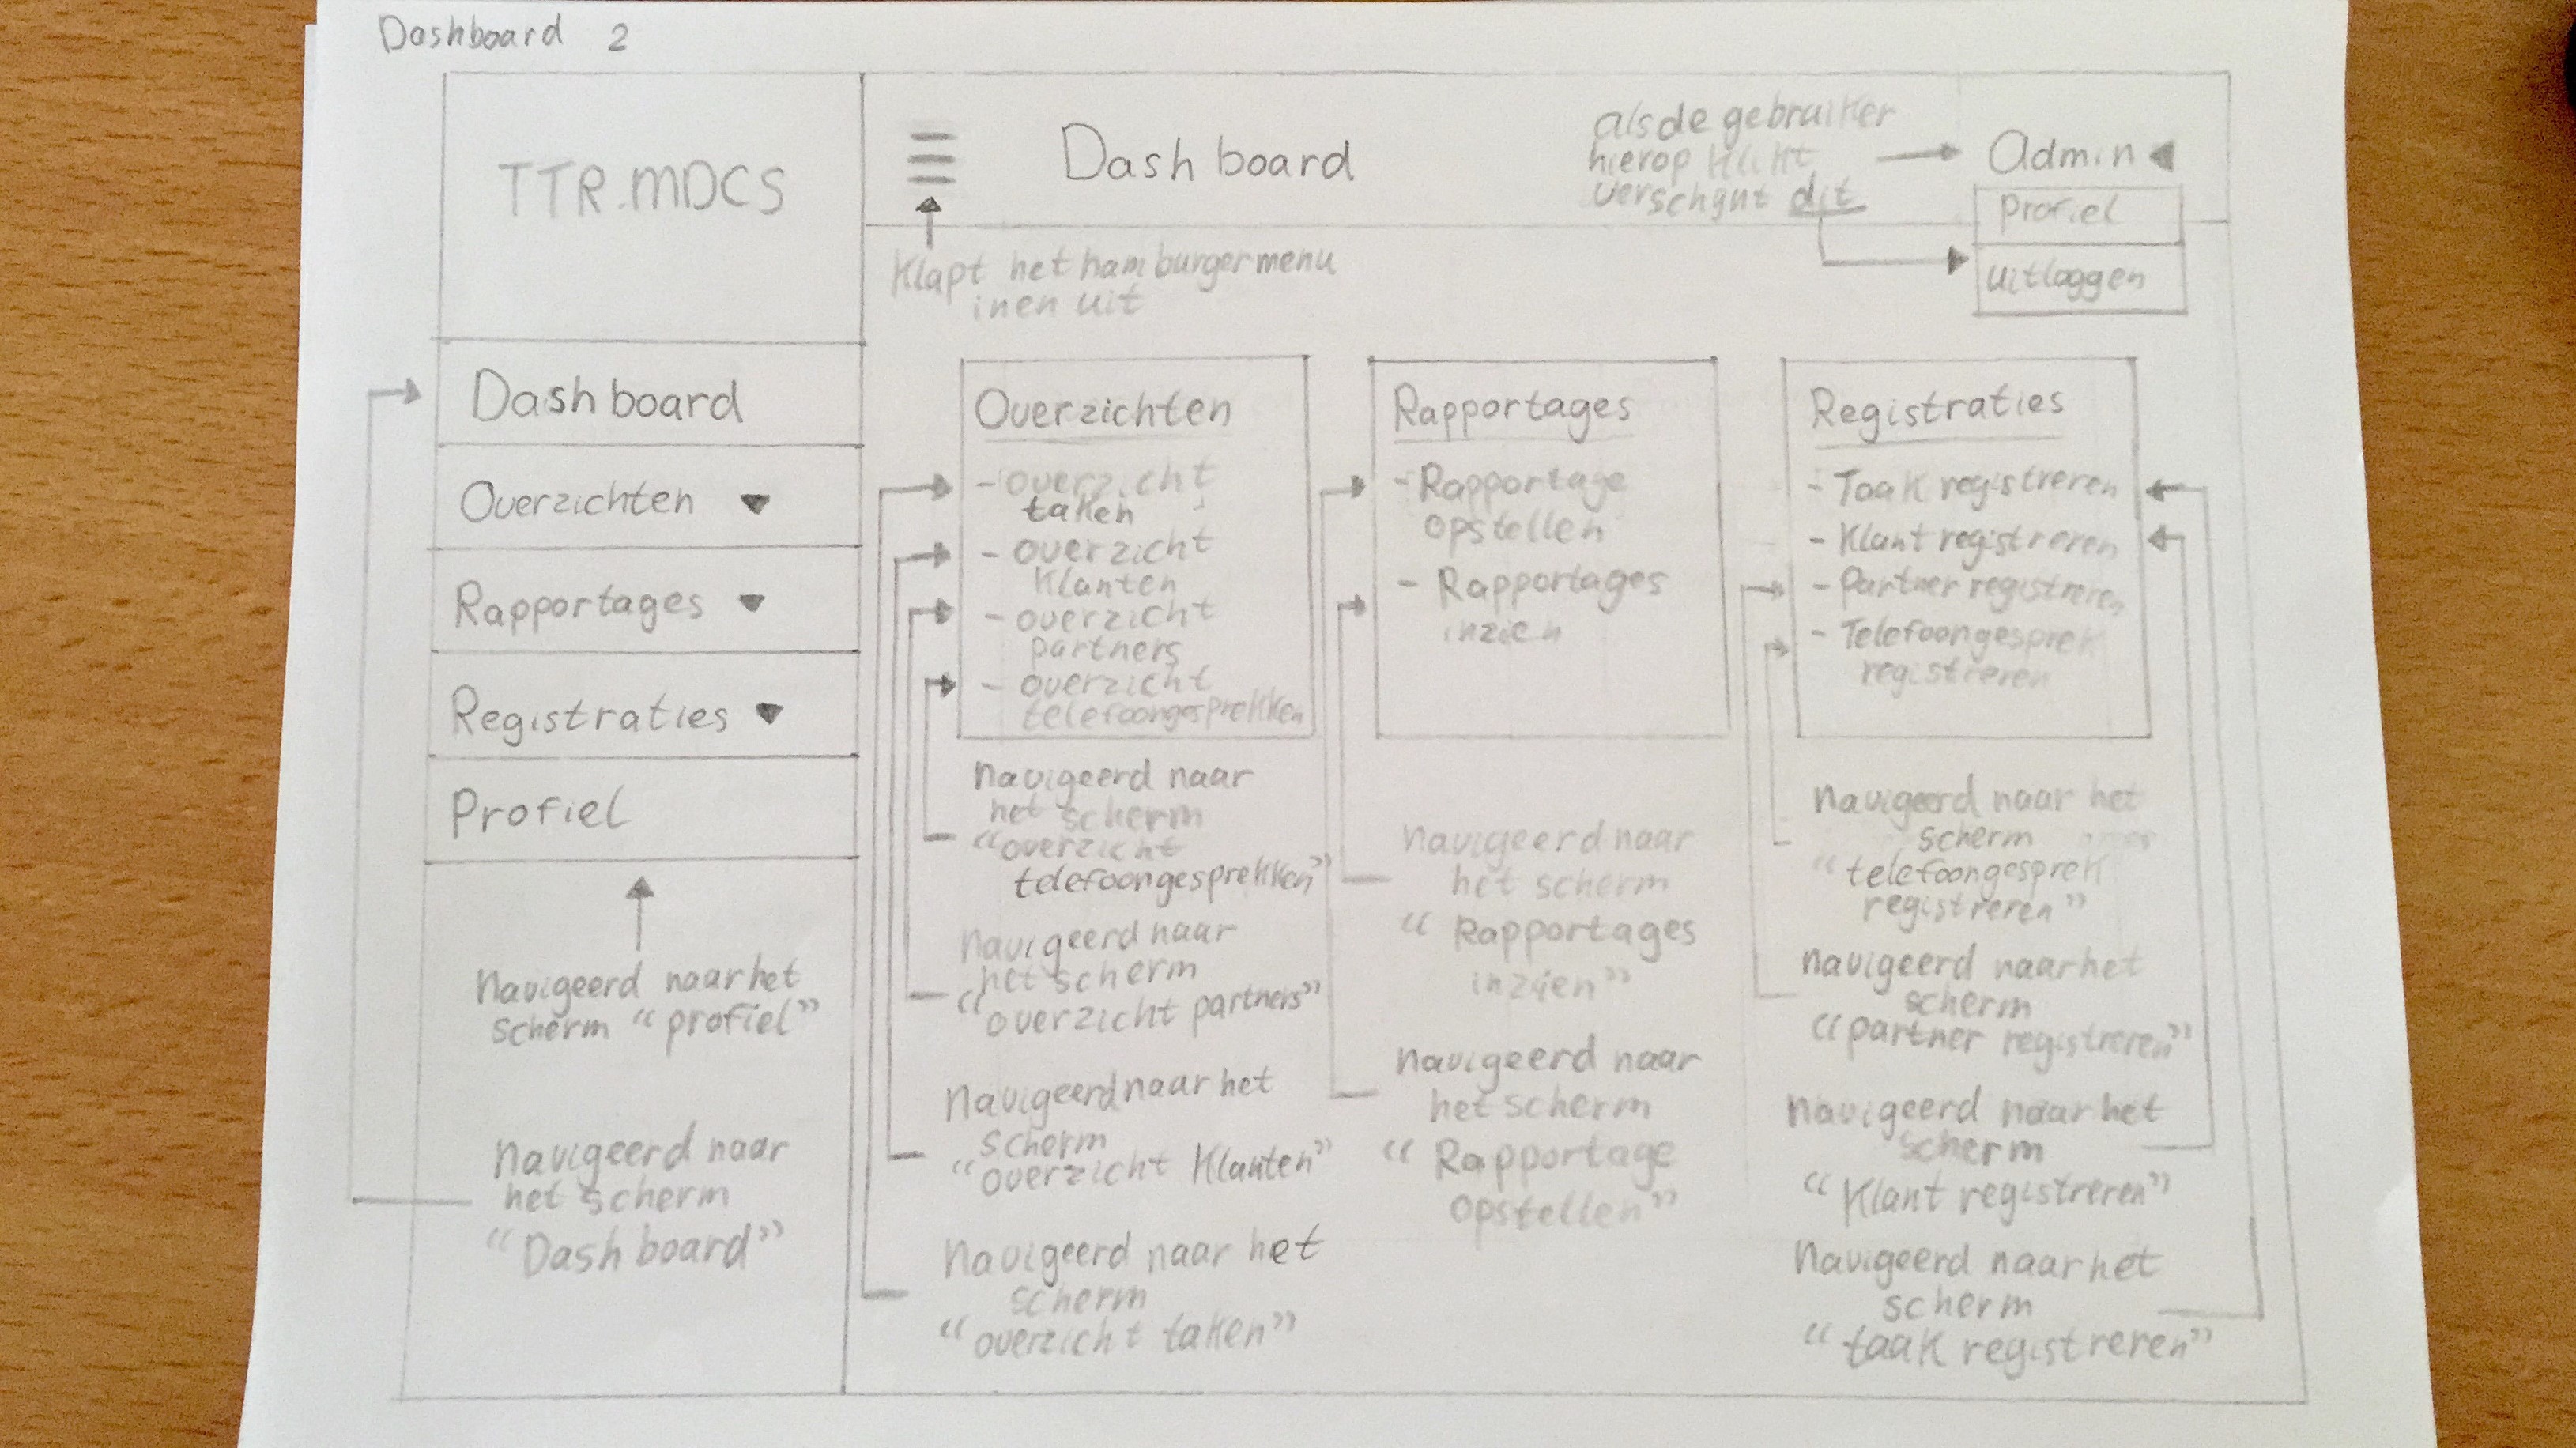 Dashboard 2
TTR.MDCS
Dashboard
als de gebruiker
hierop klikt
verschynt dit
Admin
Profiel
uitloggen
Klapt het hamburgermenu
in en uit
Dashboard
Overzichten
Rapportages
Registraties
Profiel
Navigeerd naar het
scherm "profiel"
Navigeerd naar
het scherm
"Dashboard"
Overzichten
- overzicht
taken
- overzicht
Klanten
- overzicht
partners
- overzicht
telefoongesprekken
Navigeerd naar
het scherm
"overzicht
telefoongesprekken"
Navigeerd naar
het scherm
"overzicht partners"
Navigeerd naar het
scherm
"overzicht Klanten"
Navigeerd naar het
scherm
"overzicht taken"
Rapportages
- Rapportage
opstellen
- Rapportages
inzien
Navigeerd naar
het scherm
"Rapportages
inzien"
Navigeerd naar
het scherm
"Rapportage
opstellen"
Registraties
- Taak registreren
- Klant registreren
- Partner registreren
- Telefoongesprek
registreren
Navigeerd naar het
scherm
"telefoongesprek
registreren"
Navigeerd naar het
scherm
"partner registreren"
Navigeerd naar het
scherm
"Klant registreren"
Navigeerd naar het
scherm
"taak registreren"